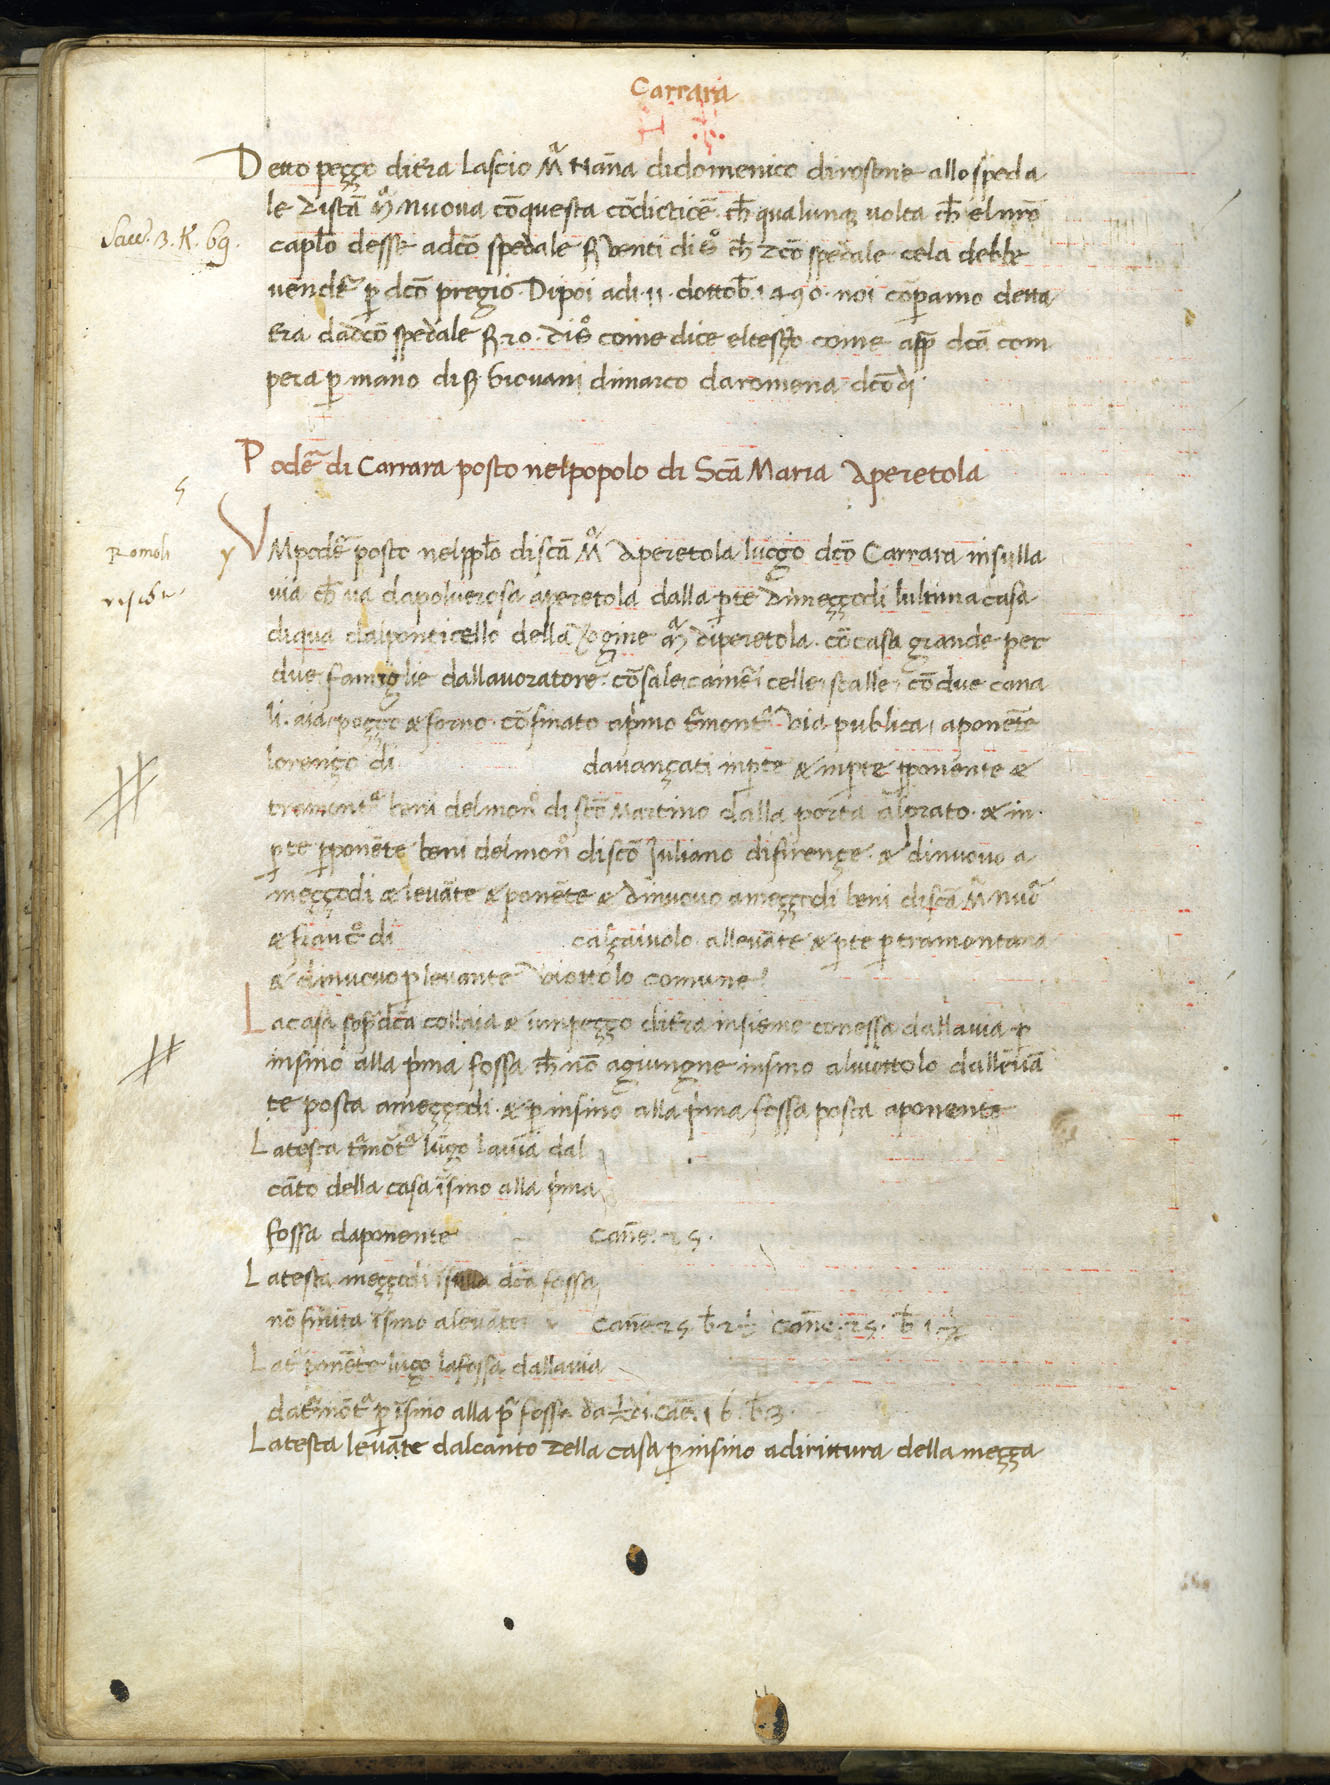 Carrara
Detto peçço di tr̃a lascio Mᵃ Nañna di domenico di rostone allo speda
le di sc̃a Mᵃ nuova cõ questa cõdictiõe. ch̃ qualunqȝ volta ch̃ el nr̃o
Sacc. 3. K. 69.
capło desse a dc̃o spedale venti di sᵒ ch̃ dc̃o spedale cela debbe
vendẽ ꝑ dc̃o pregio. Dipoi adi. 11. dottob̃. 1490. noi cõpramo detta
tr̃a da dc̃o spedale 20. di sᵒ come dice el testo come app̃ dc̃a com
pera ꝑ mano di Giovani di marco da romena dc̃o di
Podẽ di Carrara posto nel popolo di Sc̃a Maria Aperetola
5
VMpodẽ posto nel pp̃lo di sc̃a Mᵃ Aperetola luogo dc̃o Carrara in sulla
Romoli
via ch̃ va da polverosa aperetola dalla ꝑte di meççodi lultima casa
di qua dal ponticello della v̾ogine Mᵃ di peretola. cõ casa grande per
due famiglie dallavoratore. cõ sale, camẽ, celle, stalle, cõ due cana
li. aia, poçço & forno. cõfinato a p̾mo tr̃montᵃ via publica, a ponẽte
lorenço di davançati in ꝑte & in ꝑte ꝑ ponente &
tramontᵃ beni del monº di sc̃o Martino dalla porta al prato. & in
ꝑte ꝑ ponẽte beni del monº di sc̃o Juliano di firençe. & di nuovo a
meççodi & levãte & ponẽte & di nuovo a meççodi beni di sc̃a Mᵃ nuᵃ
& francº di calçaiuolo allevãte & ꝑte ꝑ tramontana
& di nuovo ꝑ levante viottolo comune
La casa sopͣdc̃a coll aia & un peçço di tr̃a insieme conessa dalla via ꝑ
insino alla p̾ma fossa ch̃ nõ agiungne insino al viottolo dallevã
te posta a meççodi. & ꝑ insino alla p̾ma fossa posta a ponente
La testa tr̃mõtᵃ lũgo la via dal
cãto della casa ĩsino alla p̾ma
fossa da ponente cañe. 25.
La testa meççodi ĩ sulla dc̃a fossa
nõ finita ĩsino a levãte cañe. 25 b̃ 2 ½ cañe. 25. b̃ 1 ½
La tᵃ ponẽte lũgo la fossa dalla via
da tr̃mõtᵃ ꝑ ĩsino alla pᵃ fossa da ½ di. cañe. 16. b̃ 3.
La testa levãte dal canto della casa ꝑ insino a dirittura della meçça